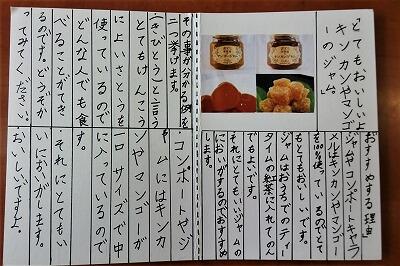 とてもおいしいよ
キンカンやマンゴ
ーのジャム。
おすすめする理由」
ジャムやコンポートキャラ
メルはキンカンやマンゴー
を100%使っているのでとて
もとてもおいしです。
ジャムはおうちでのティー
タイムの紅茶に入れてのん
でもよいです。
それにとてもいいジャムの
においがするのがおすすめ
します。
その事が分かる例を
二つ挙げます。
「きびとう」と言う
とてもけんこう
によいさとうを
使っているので
どんな人でも食
べることができ
るのです。どうぞか
ってみてください。
・コンポートやジ
ャムにはキンカ
ンやマンゴーが
一口サイズで中
に入っているので
・それにとてもい
いにおいがします。
おいしいですよ。